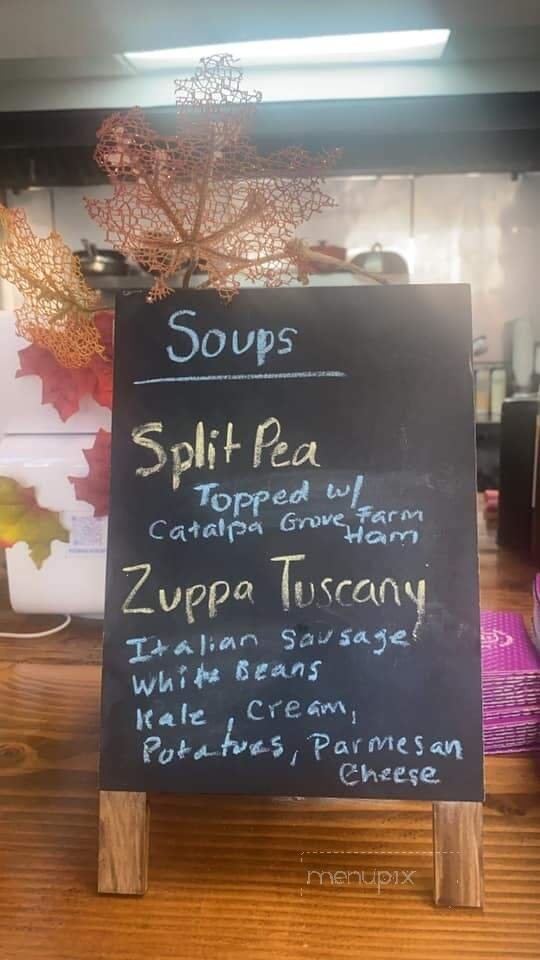 Soups
Split Pea
Topped w/
Catalpa Grove Farm
Ham
Zuppa Tuscany
Italian Sausage
White Beans
Kale, Cream,
Potatoes, Parmesan
Cheese
menupix